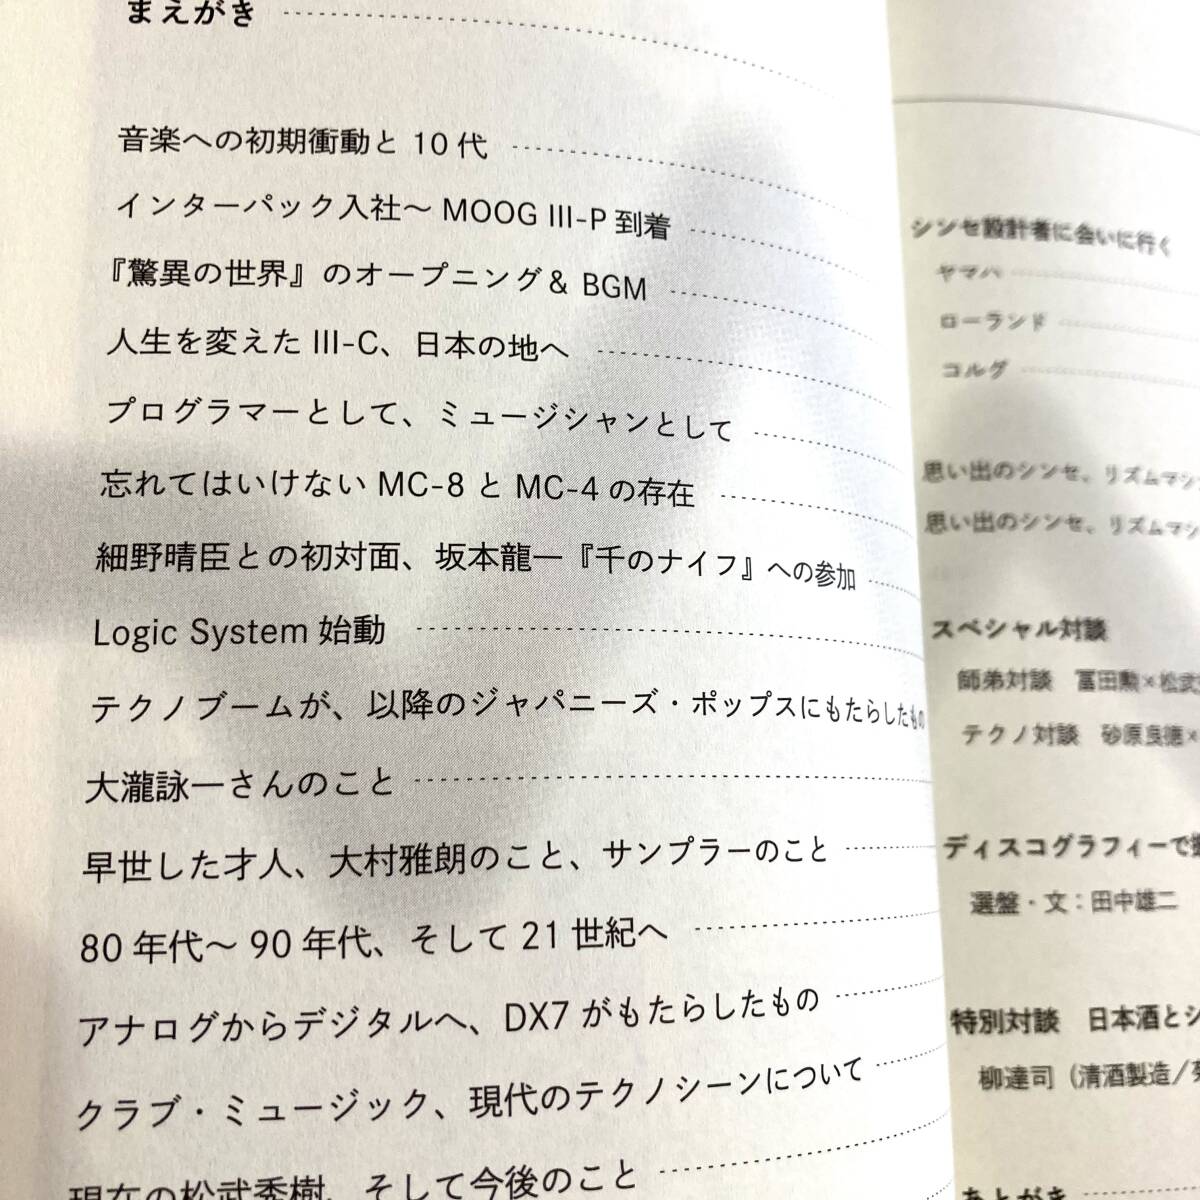 まえがき
音楽への初期衝動と 10 代
インターパック入社〜 MOOG III-P 到着
『驚異の世界』のオープニング & BGM
人生を変えた III-C、日本の地へ
プログラマーとして、ミュージシャンとして
忘れてはいけない MC-8 と MC-4 の存在
細野晴臣との初対面、坂本龍一『千のナイフ』への参加
Logic System 始動
テクノブームが、以降のジャパニーズ・ポップスにもたらしたもの
大瀧詠一さんのこと
早世した才人、大村雅朗のこと、サンプラーのこと
80 年代〜 90 年代、そして 21 世紀へ
アナログからデジタルへ、DX7 がもたらしたもの
クラブ・ミュージック、現代のテクノシーンについて
現在の松武秀樹、そして今後のこと
シンセ設計者に会いに行く
ヤマハ
ローランド
コルグ
思い出のシンセ、リズムマシ
思い出のシンセ、リズムマシ
スペシャル対談
師弟対談 冨田勲×松武
テクノ対談 砂原良徳×
ディスコグラフィーで
選盤・文：田中雄二
特別対談 日本酒とシ
柳達司（清酒製造／
あとがき